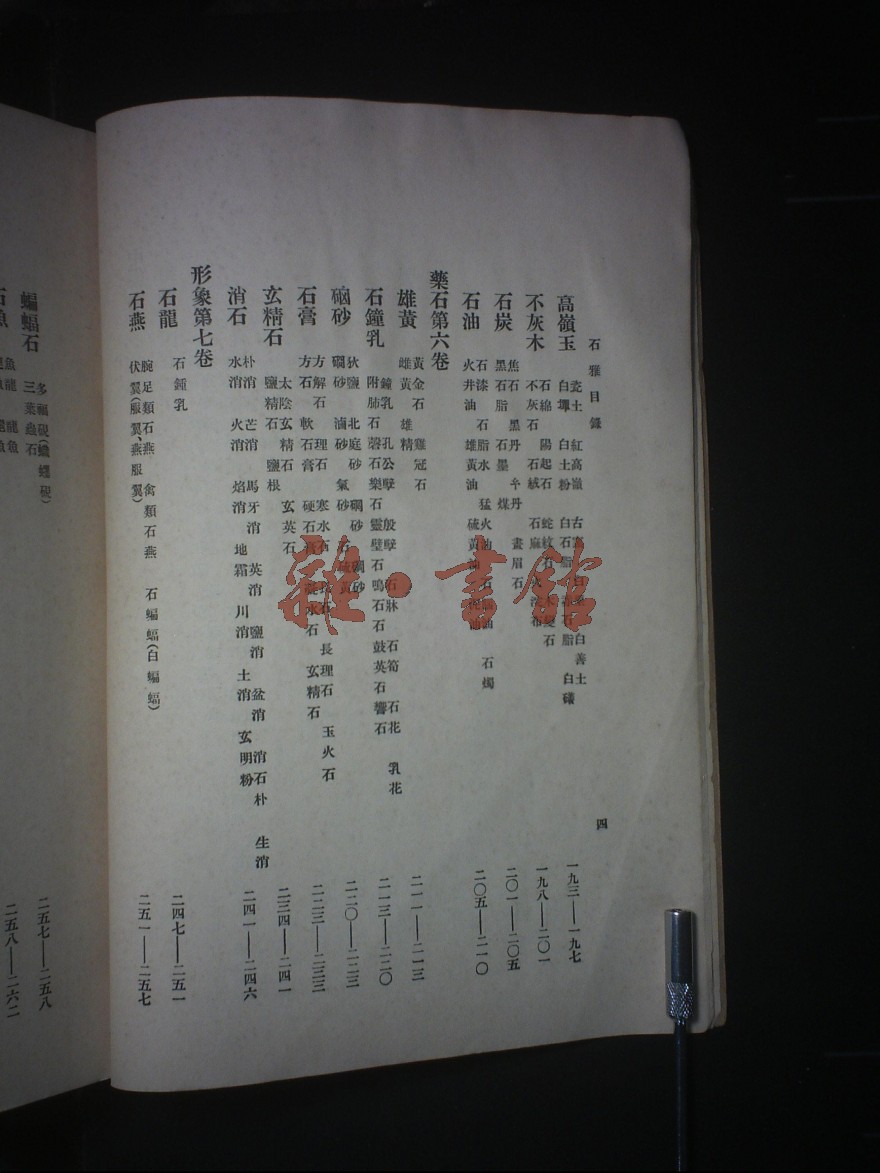 石雅目錄
四
高嶺玉
瓷土 紅高嶺
白墡 白土粉 白石脂
白善土
白礒
一九三——一九七
不灰木
石綿 陽起石 蛇紋石
不灰石 石絨 石麻 火浣布
一九八——二〇一
石炭
焦石 黑丹
畫眉石
黑石脂 石墨 煤
二〇一——二〇五
石油
石漆 石脂水 猛火油
石燭
火井油 雄黃油 硫黃油
二〇五——二一〇
藥石第六卷
雄黃
黃金石 雞冠石
雌黃 雄精
二一一——二一三
石鐘乳
鐘乳 孔公孽 殷孽 石牀 石筍 石花 乳花
附肺石 磬石 樂石 靈璧石 鳴石 石鼓 英石 響石
二一三——二二〇
硇砂
狄鹽 北庭砂
氣砂
二二〇——二二三
石膏
方解石 理石 寒水石
長理石 玉火石
方石 軟石膏 硬石膏 凝水石 玄精石
二二三——二三三
玄精石
太陰玄精石 玄英石
鹽精石 鹽根
二三四——二四一
消石
朴消 芒消 馬牙消 英消 鹽消 盆消 消石朴 生消
水消 火消 焰消 地霜 川消 土消 玄明粉
二四一——二四六
形象第七卷
石龍
石鍾乳
二四七——二五一
石燕
腕足類石燕 禽類石燕 石蝙蝠(白蝙蝠)
伏翼(服翼、燕服翼)
二五一——二五七
蝙蝠石
多福硯(蟙䘃硯)
三葉蟲石
二五七——二五八
石魚
二五八——二六二
雜·書館